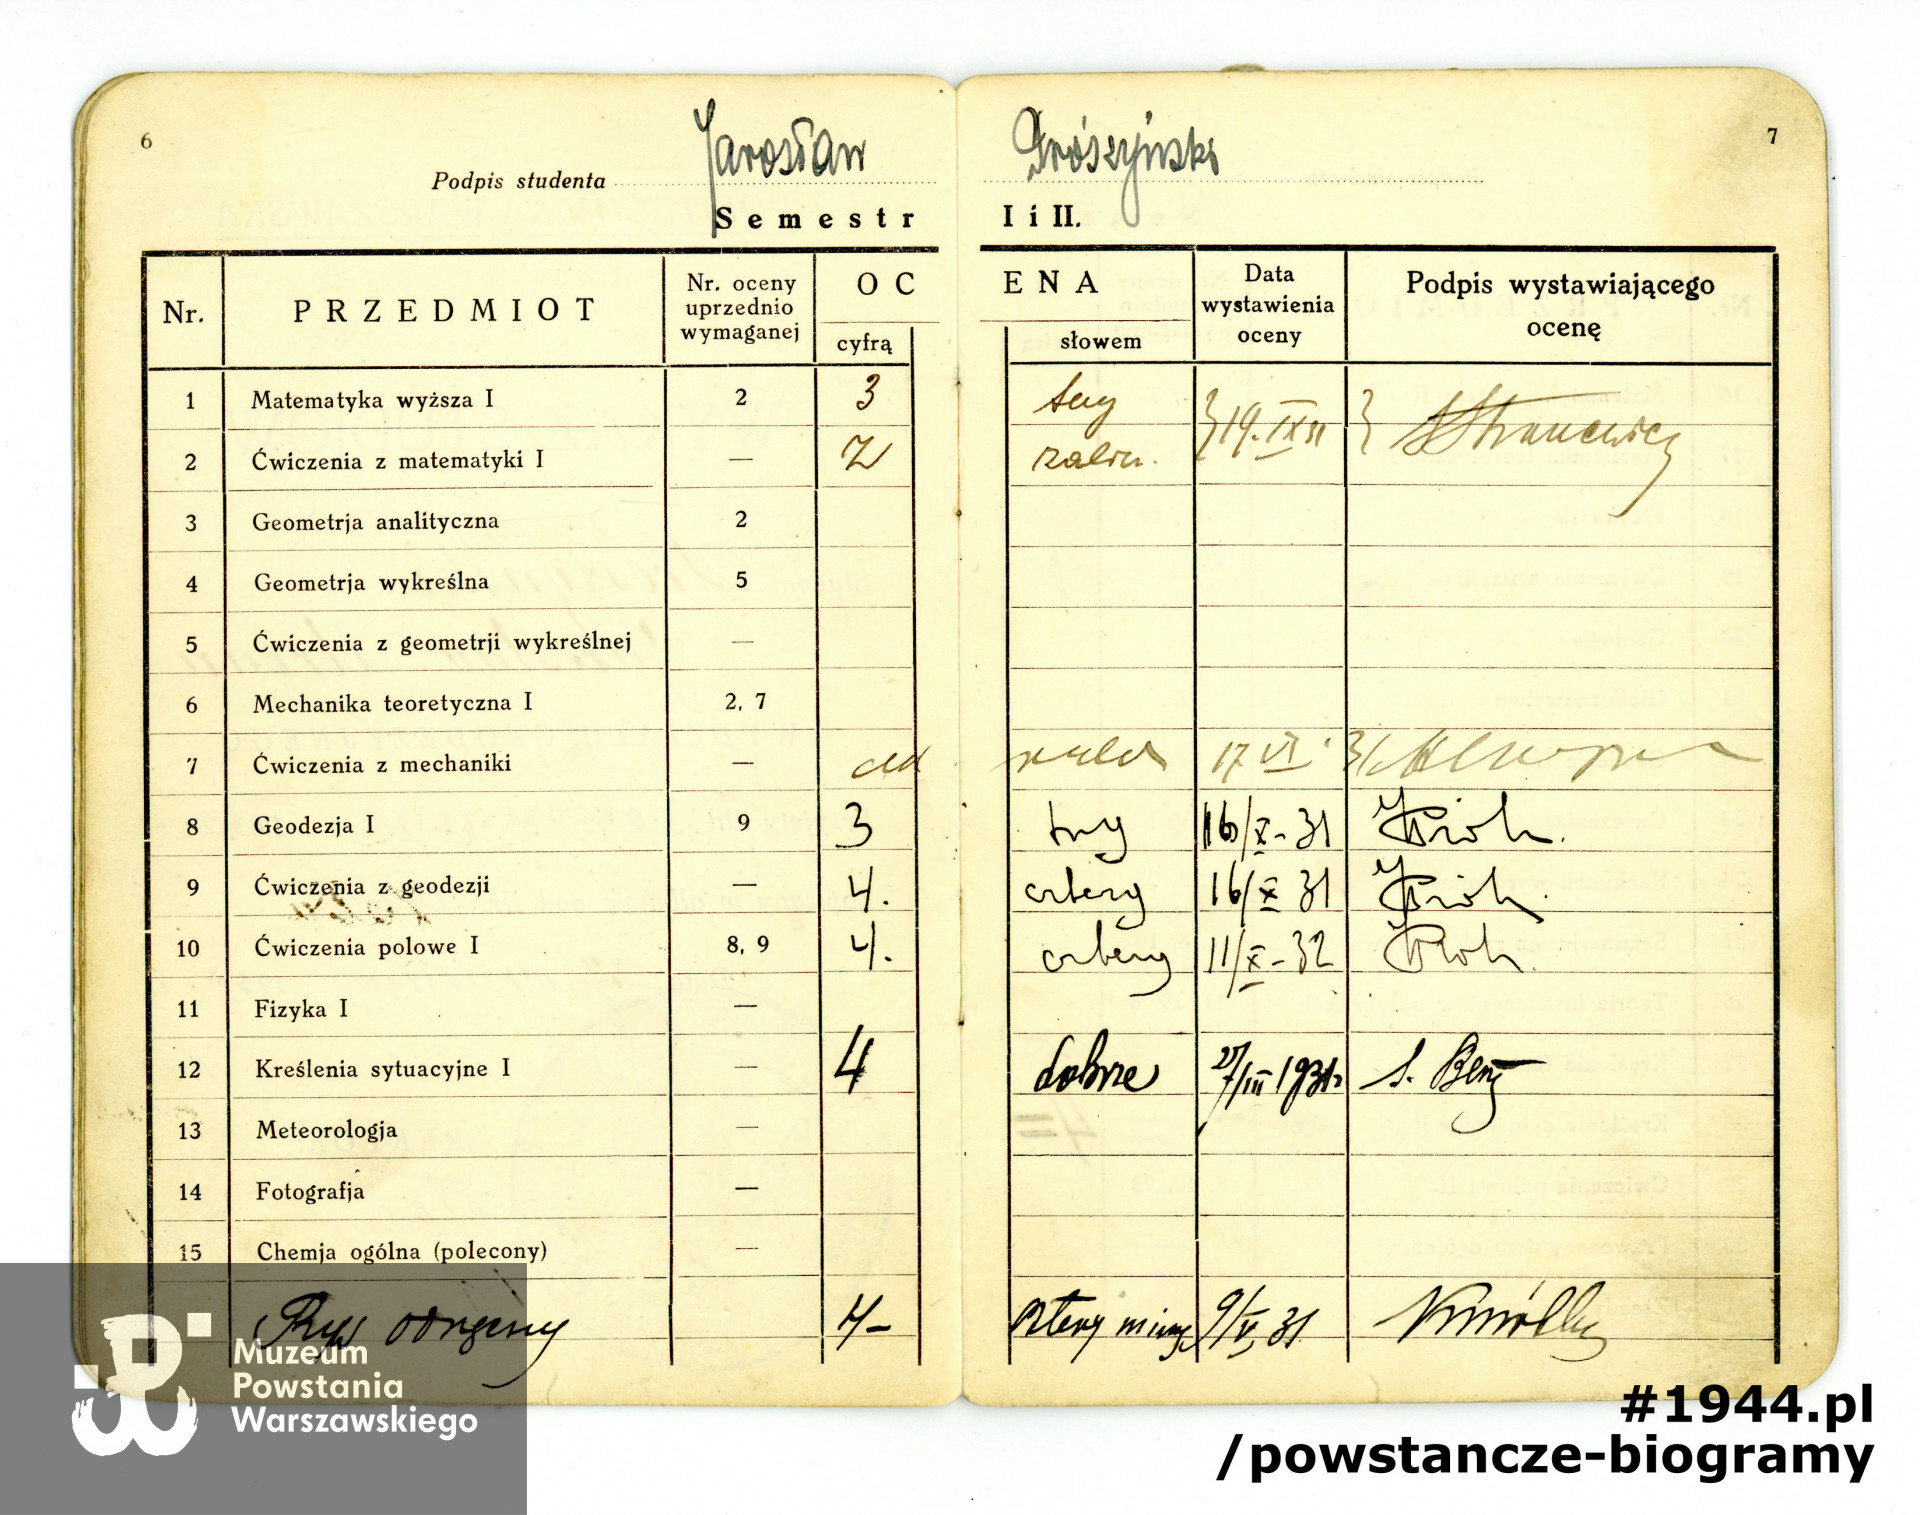 6
Podpis studenta Jarosław
7
Semestr I i II.
Nr. PRZEDMIOT Nr. oceny uprzednio wymaganej OCENA cyfrą słowem Data wystawienia oceny Podpis wystawiającego ocenę
1 Matematyka wyższa I 2 3 trzy 19. IX 31
2 Ćwiczenia z matematyki I — Z zalicz.
3 Geometrja analityczna 2
4 Geometrja wykreślna 5
5 Ćwiczenia z geometrji wykreślnej —
6 Mechanika teoretyczna I 2, 7
7 Ćwiczenia z mechaniki — 17 VI 31
8 Geodezja I 9 3 trzy 16/X - 31
9 Ćwiczenia z geodezji — 4. cztery 16/X 31
10 Ćwiczenia polowe I 8, 9 4. cztery 11/X - 32
11 Fizyka I —
12 Kreślenia sytuacyjne I — 4 dobrze 27/III 1931r
13 Meteorologja —
14 Fotografja —
15 Chemja ogólna (polecony) —
Rys odręczny 4- cztery minus 9/V 31.
Muzeum
Powstania
Warszawskiego
#1944.pl
/powstancze-biogramy